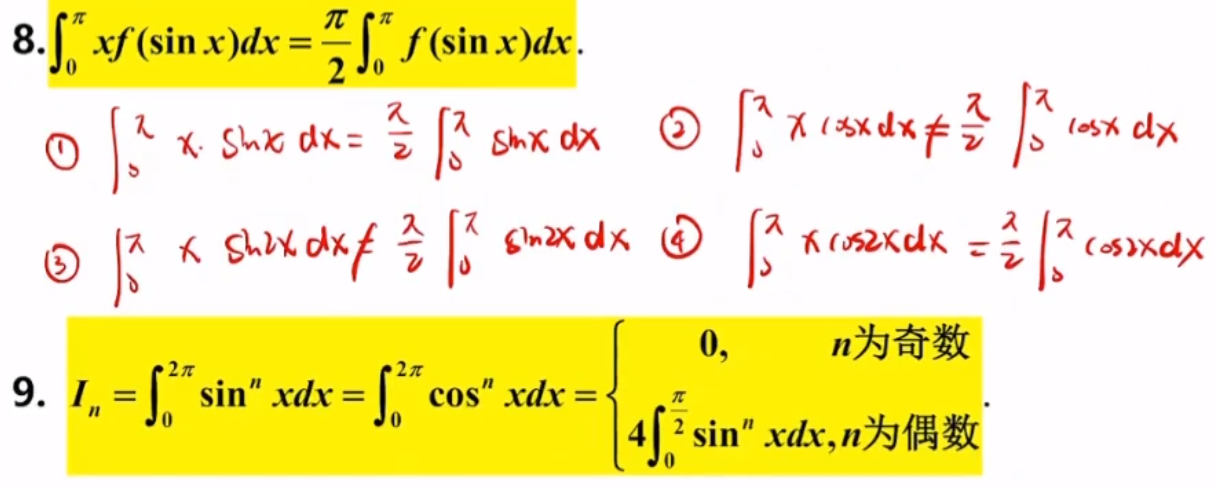 8. ∫₀^π xf(sin x)dx = π/2 ∫₀^π f(sin x)dx.
① ∫₀^π x·sinx dx = π/2 ∫₀^π sinx dx ② ∫₀^π x cosx dx ≠ π/2 ∫₀^π cosx dx
③ ∫₀^π x sin2x dx ≠ π/2 ∫₀^π sin2x dx ④ ∫₀^π x cos2x dx = π/2 ∫₀^π cos2x dx
9. Iₙ = ∫₀^{2π} sinⁿ xdx = ∫₀^{2π} cosⁿ xdx = { 0, n为奇数
4∫₀^{π/2} sinⁿ xdx, n为偶数.